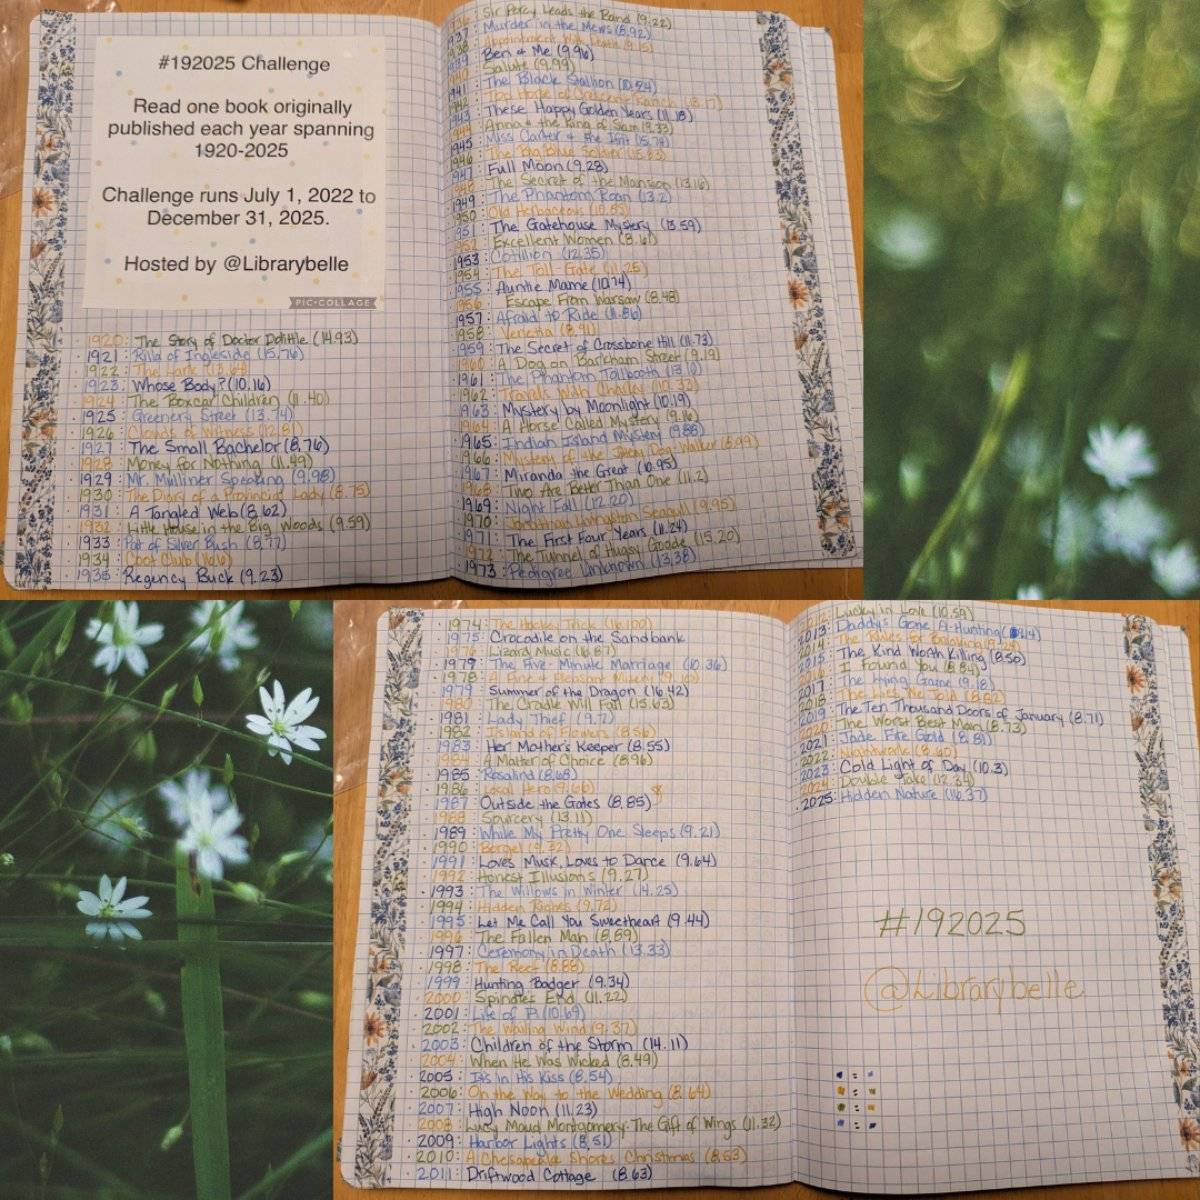 #192025 Challenge
Read one book originally
published each year spanning
1920-2025
Challenge runs July 1, 2022 to
December 31, 2025.
Hosted by @Librarybelle
PIC•COLLAGE
1920: The Story of Doctor Dolittle (14.93)
1921: Rilla of Ingleside (15.76)
1922: The Lark (13.64)
1923: Whose Body? (10.16)
1924: The Boxcar Children (11.40)
1925: Greenery Street (13.74)
1926: Clouds of Witness (12.81)
1927: The Small Bachelor (8.76)
1928: Money for Nothing (11.99)
1929: Mr. Mulliner Speaking (9.98)
1930: The Diary of a Provincial Lady (8.75)
1931: A Tangled Web (8.62)
1932: Little House in the Big Woods (9.59)
1933: Pat of Silver Bush (8.77)
1934:
1935: Regency Buck (9.23)
Sir Percy Leads the Band (9.22)
1937: Murder in the Mews (8.92)
Appointment With Death (9.15)
Ben & Me (9.96)
Salute (9.99)
1941: The Black Stallion (10.54)
1943: These Happy Golden Years (11.18)
1944: Anna & the King of Siam (9.33)
1945: Miss Carter & the Ifrit (15.74)
1946: The Big Blue Soldier
1947: Full Moon (9.23)
1948: The Secret of the Mansion (13.16)
1949: The Phantom Roan (13.2)
1950: Old Herbaceous
1951: The Gatehouse Mystery (13.59)
1952: Excellent Women (8.61)
1953: Cotillion (12.35)
1954: The Toll-Gate (11.25)
1955: Auntie Mame (10.74)
1956: Escape From Warsaw (8.48)
1957: Afraid to Ride (11.86)
1958: Venetia (8.91)
1959: The Secret of Crossbone Hill (11.73)
1960: A Dog on Barkham Street (9.19)
1961: The Phantom Tollbooth (13.10)
1962: Travels with Charley (10.32)
1963: Mystery by Moonlight (10.19)
1964: A Horse Called Mystery (9.16)
1965: Indian Island Mystery (9.88)
1966: Mystery of the Dog Walker (8.99)
1967: Miranda the Great (10.95)
1968: Two Are Better Than One (11.2)
1969: Night Fall (12.20)
1970: Jonathan Livingston Seagull (9.95)
1971: The First Four Years (11.24)
1972: The Tunnel of Hugsy Goode (15.20)
1973: Pedigree Unknown (13.38)
1974: The Hockey Trick
1975: Crocodile on the Sandbank
1976: Lizard Music
1979: The Five-Minute Marriage (10.36)
1978: A Fine & Pleasant Misery
1979: Summer of the Dragon (16.42)
1980: The Cradle Will Fall (15.63)
1981: Lady Thief (9.72)
1982: Island of Flowers (8.56)
1983: Her Mother's Keeper (8.55)
1984: A Matter of Choice (8.96)
1985: Rosalind (8.68)
1986: Local Hero
1987: Outside the Gates (8.85)
1988: Sourcery (13.11)
1989: While My Pretty One Sleeps (9.21)
1990:
1991: Loves Music, Loves to Dance (9.64)
1992: Honest Illusions (9.27)
1993: The Willows in Winter (14.25)
1994: Hidden Riches (9.72)
1995: Let Me Call You Sweetheart (9.44)
1996: The Fallen Man (8.89)
1997: Ceremony in Death (13.33)
1998: The Reef (8.88)
1999: Hunting Badger (9.34)
2000: Spindle's End (11.22)
2001: Life of Pi (10.69)
2002: The Wailing Wind (9.37)
2003: Children of the Storm (14.11)
2004: When He Was Wicked (8.49)
2005: It's in His Kiss (8.54)
2006: On the Way to the Wedding (8.64)
2007: High Noon (11.23)
2008: Lucy Maud Montgomery: The Gift of Wings (11.32)
2009: Harbor Lights (8.51)
2010: A Chesapeake Shores Christmas (8.53)
2011: Driftwood Cottage (8.63)
Lucky in Love (10.59)
2013: Daddy's Gone A-Hunting
2014: The Rules for Belonging
2015: The Kind Worth Killing (8.50)
I Found You (8.84)
2017: The Lying Game (9.18)
2018: The Lies We Told (8.82)
2019: The Ten Thousand Doors of January (8.71)
2020: The Worst Best Man (8.73)
2021: Jade Fire Gold (8.81)
2022: Nightwork (8.60)
2023: Cold Light of Day (10.3)
2024: Double Take (12.34)
2025: Hidden Nature (16.37)
#192025
@Librarybelle